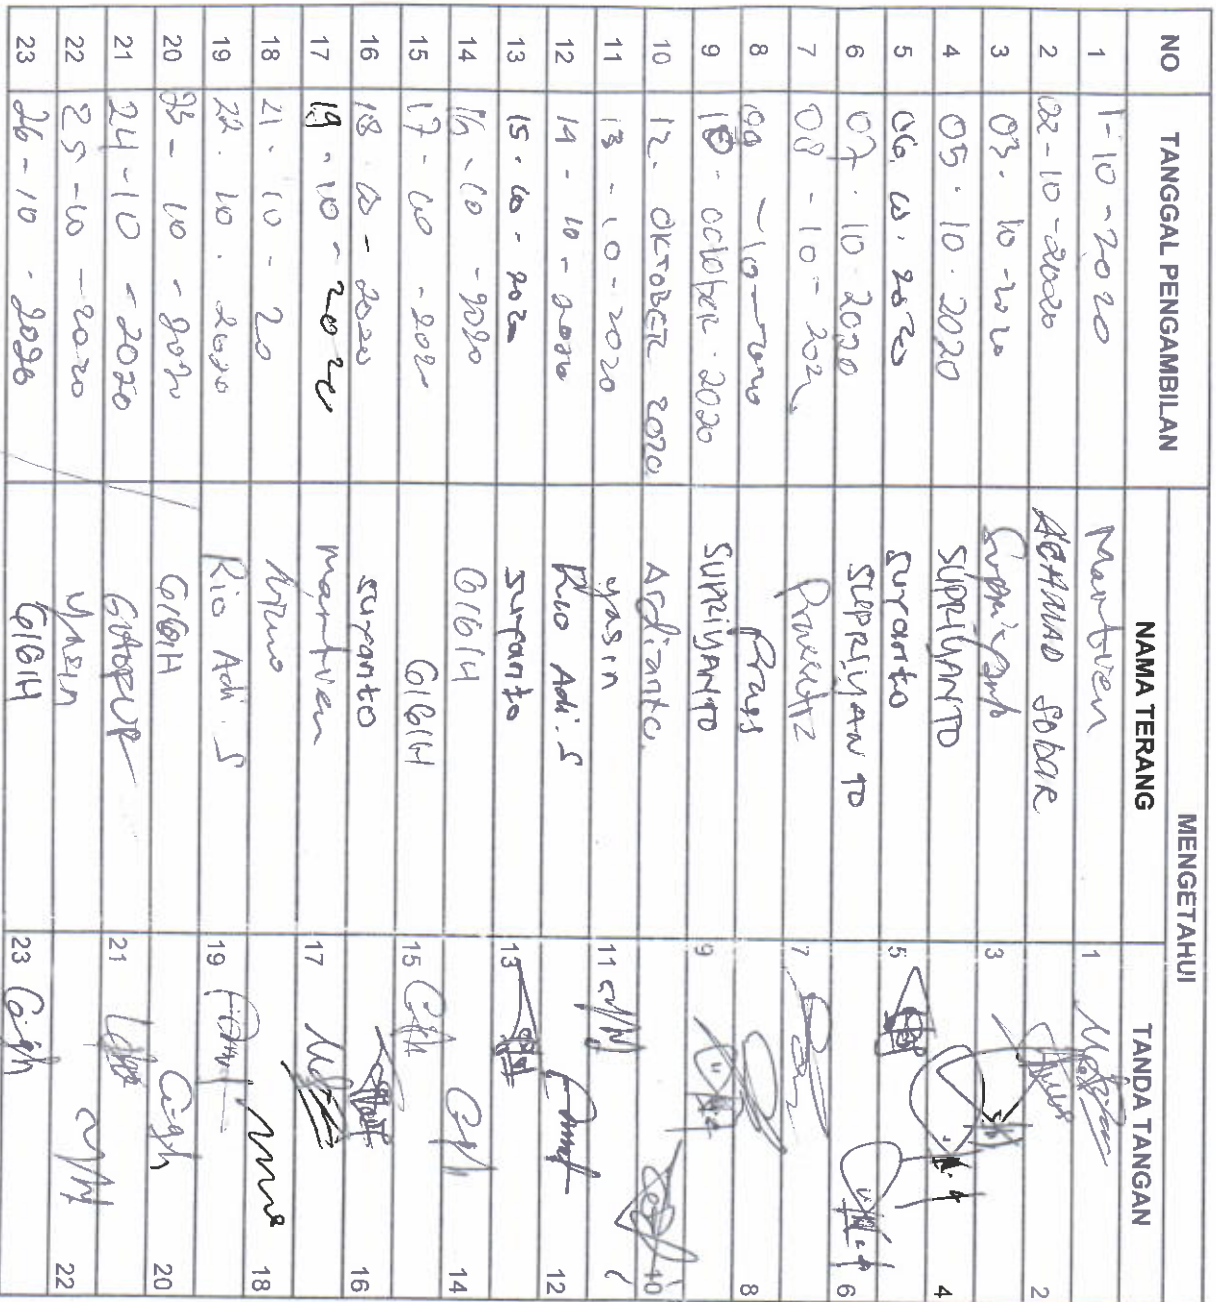 MENGETAHUI
NO TANGGAL PENGAMBILAN NAMA TERANG TANDA TANGAN
1 1-10-2020 Martven 1
2 02-10-2020 ACHMAD SOBAR 2
3 03. 10 -2020 Supriyanto 3
4 05. 10. 2020 SUPRIYANTO 4
5 06. 10. 2020 suranto 5
6 07. 10 2020 SUPRIYANTO 6
7 08 - 10 - 202 7
8 09 - 10 - 2020 Pras 8
9 10 - october. 2020 SUPRIYANTO 9
10 12. OKTOBER 2020 Ardianto. 10
11 13 - 10 - 2020 yasin 11
12 14 - 10 - 2020 Rio Adi. S 12
13 15. 10 - 2020 suranto 13
14 16 - 10 - 2020 GIGIH 14
15 17 - 10 - 2020 GIGIH 15
16 18. 10 - 2020 suranto 16
17 19 - 10 - 2020 martven 17
18 21. 10 - 20 18
19 22. 10. 2020 Rio Adi. S 19
20 23 - 10 - 2020 GIGIH Gigh 20
21 24 - 10 - 2020 21
22 25 - 10 - 2020 yasin 22
23 26 - 10 - 2020 GIGIH 23 Gigh